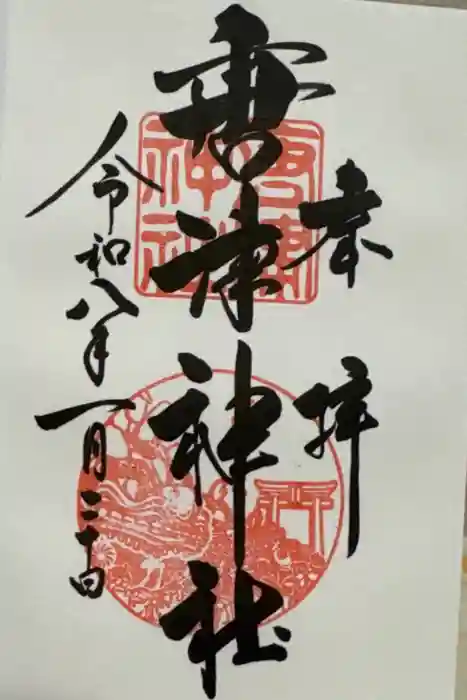 奉拝
唐津神社
令和八年一月二十日
唐津
神社